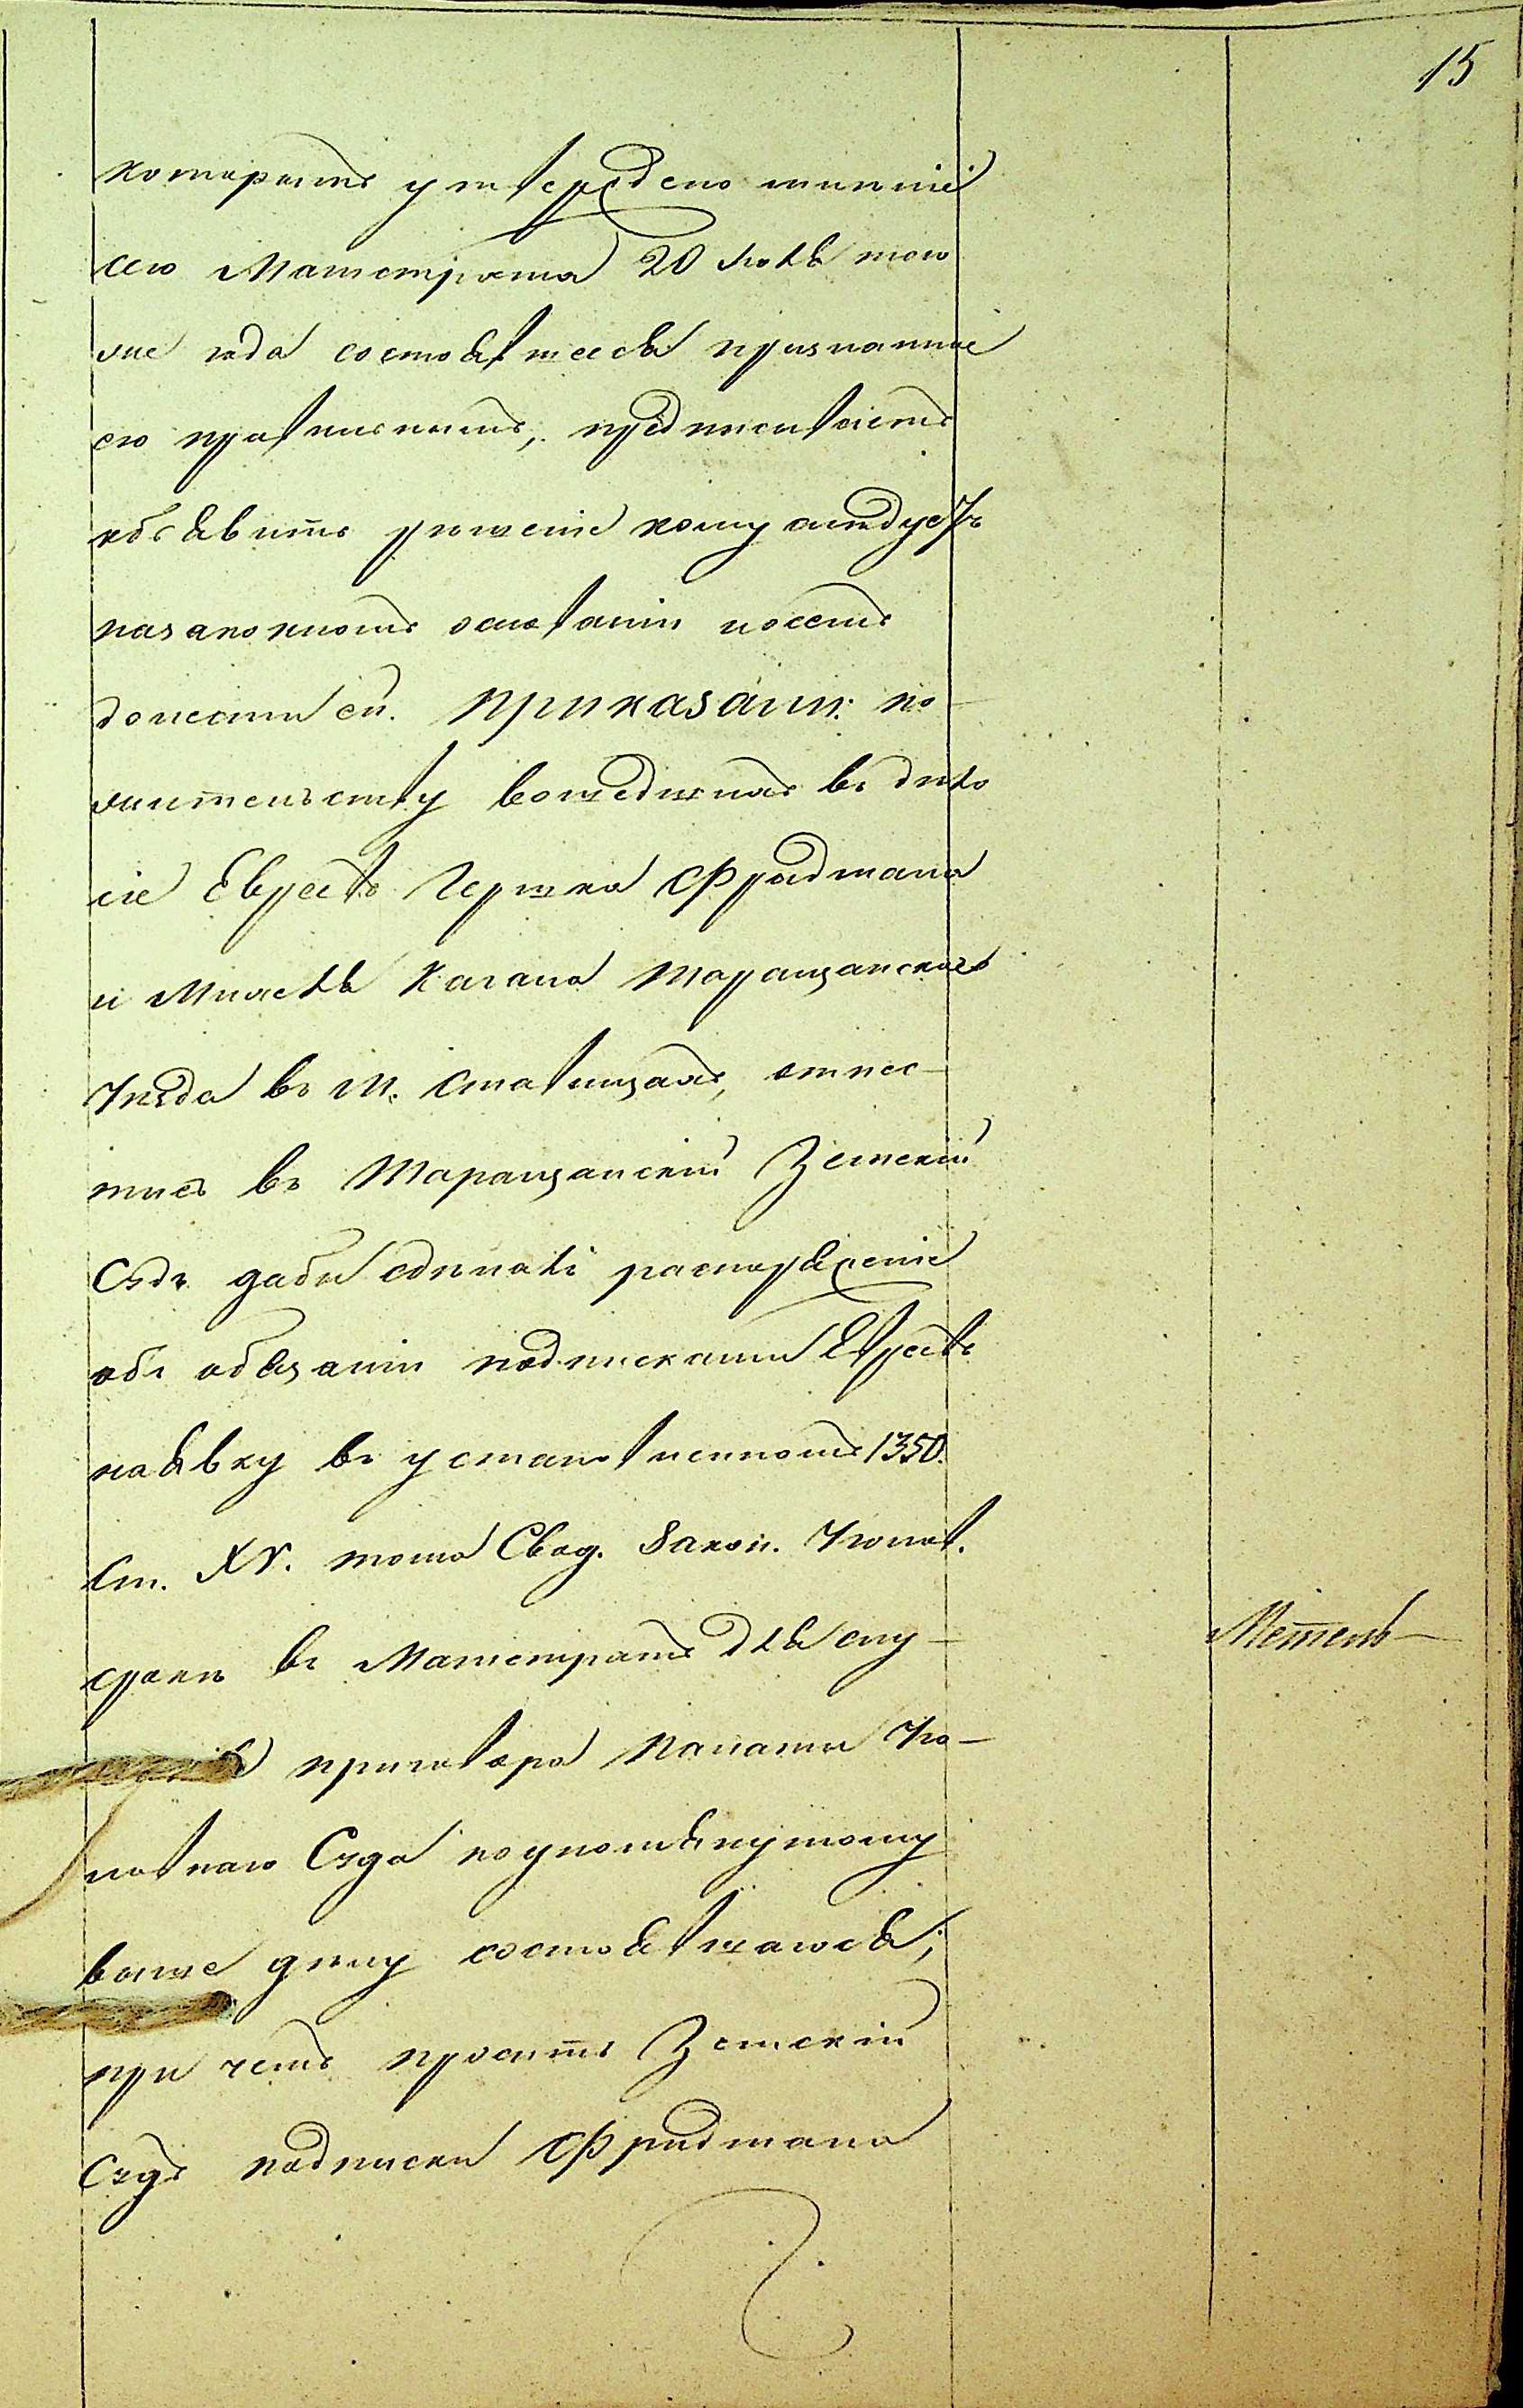 15
которымъ утверждено мнѣніе
сего Магистрата 20 Іюля того
же года состоявшееся признанное
ею правильнымъ, предписываетъ
объявить рѣшеніе кому слѣдуетъ
на законномъ основаніи и о семъ
донести ей. Приказали: по
жительству вошедшихъ въ дѣло
сіе Евреевъ Гершка Фридмана
и Мошка Кагана Таращанскаго
Уѣзда въ м. Ставищахъ, отнес-
тись въ Таращанскій Земскій
Судъ дабы сдѣлалъ распоряженіе
объ обязаніи подписками Евреевъ
на явку въ установленномъ 1350.
Ст. XV. тома Свод. Закон. Уголов.
срокѣ въ Магистратъ для слу-
приговора Палаты Уго-
ловнаго Суда по упомянутому
выше дѣлу состоявшагося;
при чемъ просить Земскій
Судъ подписки Фридмана